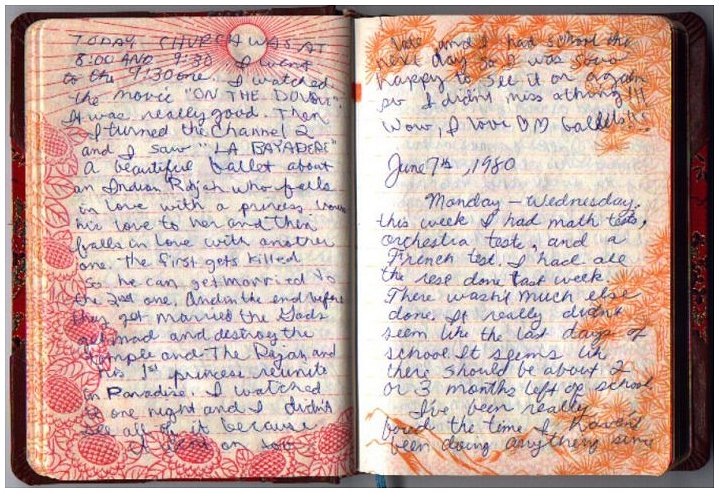 TODAY CHURCH WAS AT
8:00 AND 9:30. I went
to the 9:30 one. I watched
the movie "ON THE DOUBLE".
It was really good. Then
I turned the channel 2
and I saw "LA BAYADERE"
A beautiful ballet about
an Indian Rajah who falls
in love with a princess
his love to her and then
falls in love with another
one. The first gets killed
So he can get married to
the 2nd one. And in the end before
they get married the Gods
get mad and destroy the
temple and The Rajah and
his 1st princess reunite
in Paradise. I watched
it one night and I didn't
see all of it because
it went on too
late and I had school the
next day so I was sooo
happy to see it on again
so I didn't miss a thing!!!
Wow, I love ballets!!!
June 7th, 1980
Monday - Wednesday.
this week I had math tests,
orchestra tests, and a
French test. I had all
the rest done last week
There wasn't much else
done. It really didn't
seem like the last days of
school It seems like
there should be about 2
or 3 months left of school
I've been really
bored the time I haven't
been doing anything since